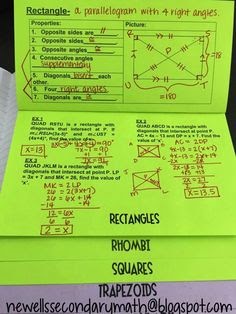 Rectangle- a parallelogram with 4 right angles.
Properties:
Picture:
1. Opposite sides are //
2. Opposite sides ≅
3. Opposite angles ≅
4. Consecutive angles
supplementary
5. Diagonals bisect each
other.
6. Four right angles
7. Diagonals are ≅
=180
EX 1
QUAD RSTU is a rectangle with
diagonals that intersect at point P. If
find the value of 'x'.
x=13
EX 2
QUAD ABCD is a rectangle with
diagonals that intersect at point P. AC
= 4x - 13 and DP = x + 7, find the value
of 'x'.
AC = 2DP
4x-13 = 2(x+7)
4x-13 = 2x+14
2x = 27
x = 13.5
EX 3
QUAD JKLM is a rectangle with
diagonals that intersect at point P. LP
= 3x + 7 and MK = 26, find the value of
'x'.
MK = 2LP
26 = 2(3x+7)
26 = 6x+14
-14 -14
12 = 6x
6 6
2 = x
RECTANGLES
RHOMBI
SQUARES
TRAPEZOIDS
newellssecondarymath@blogspot.com